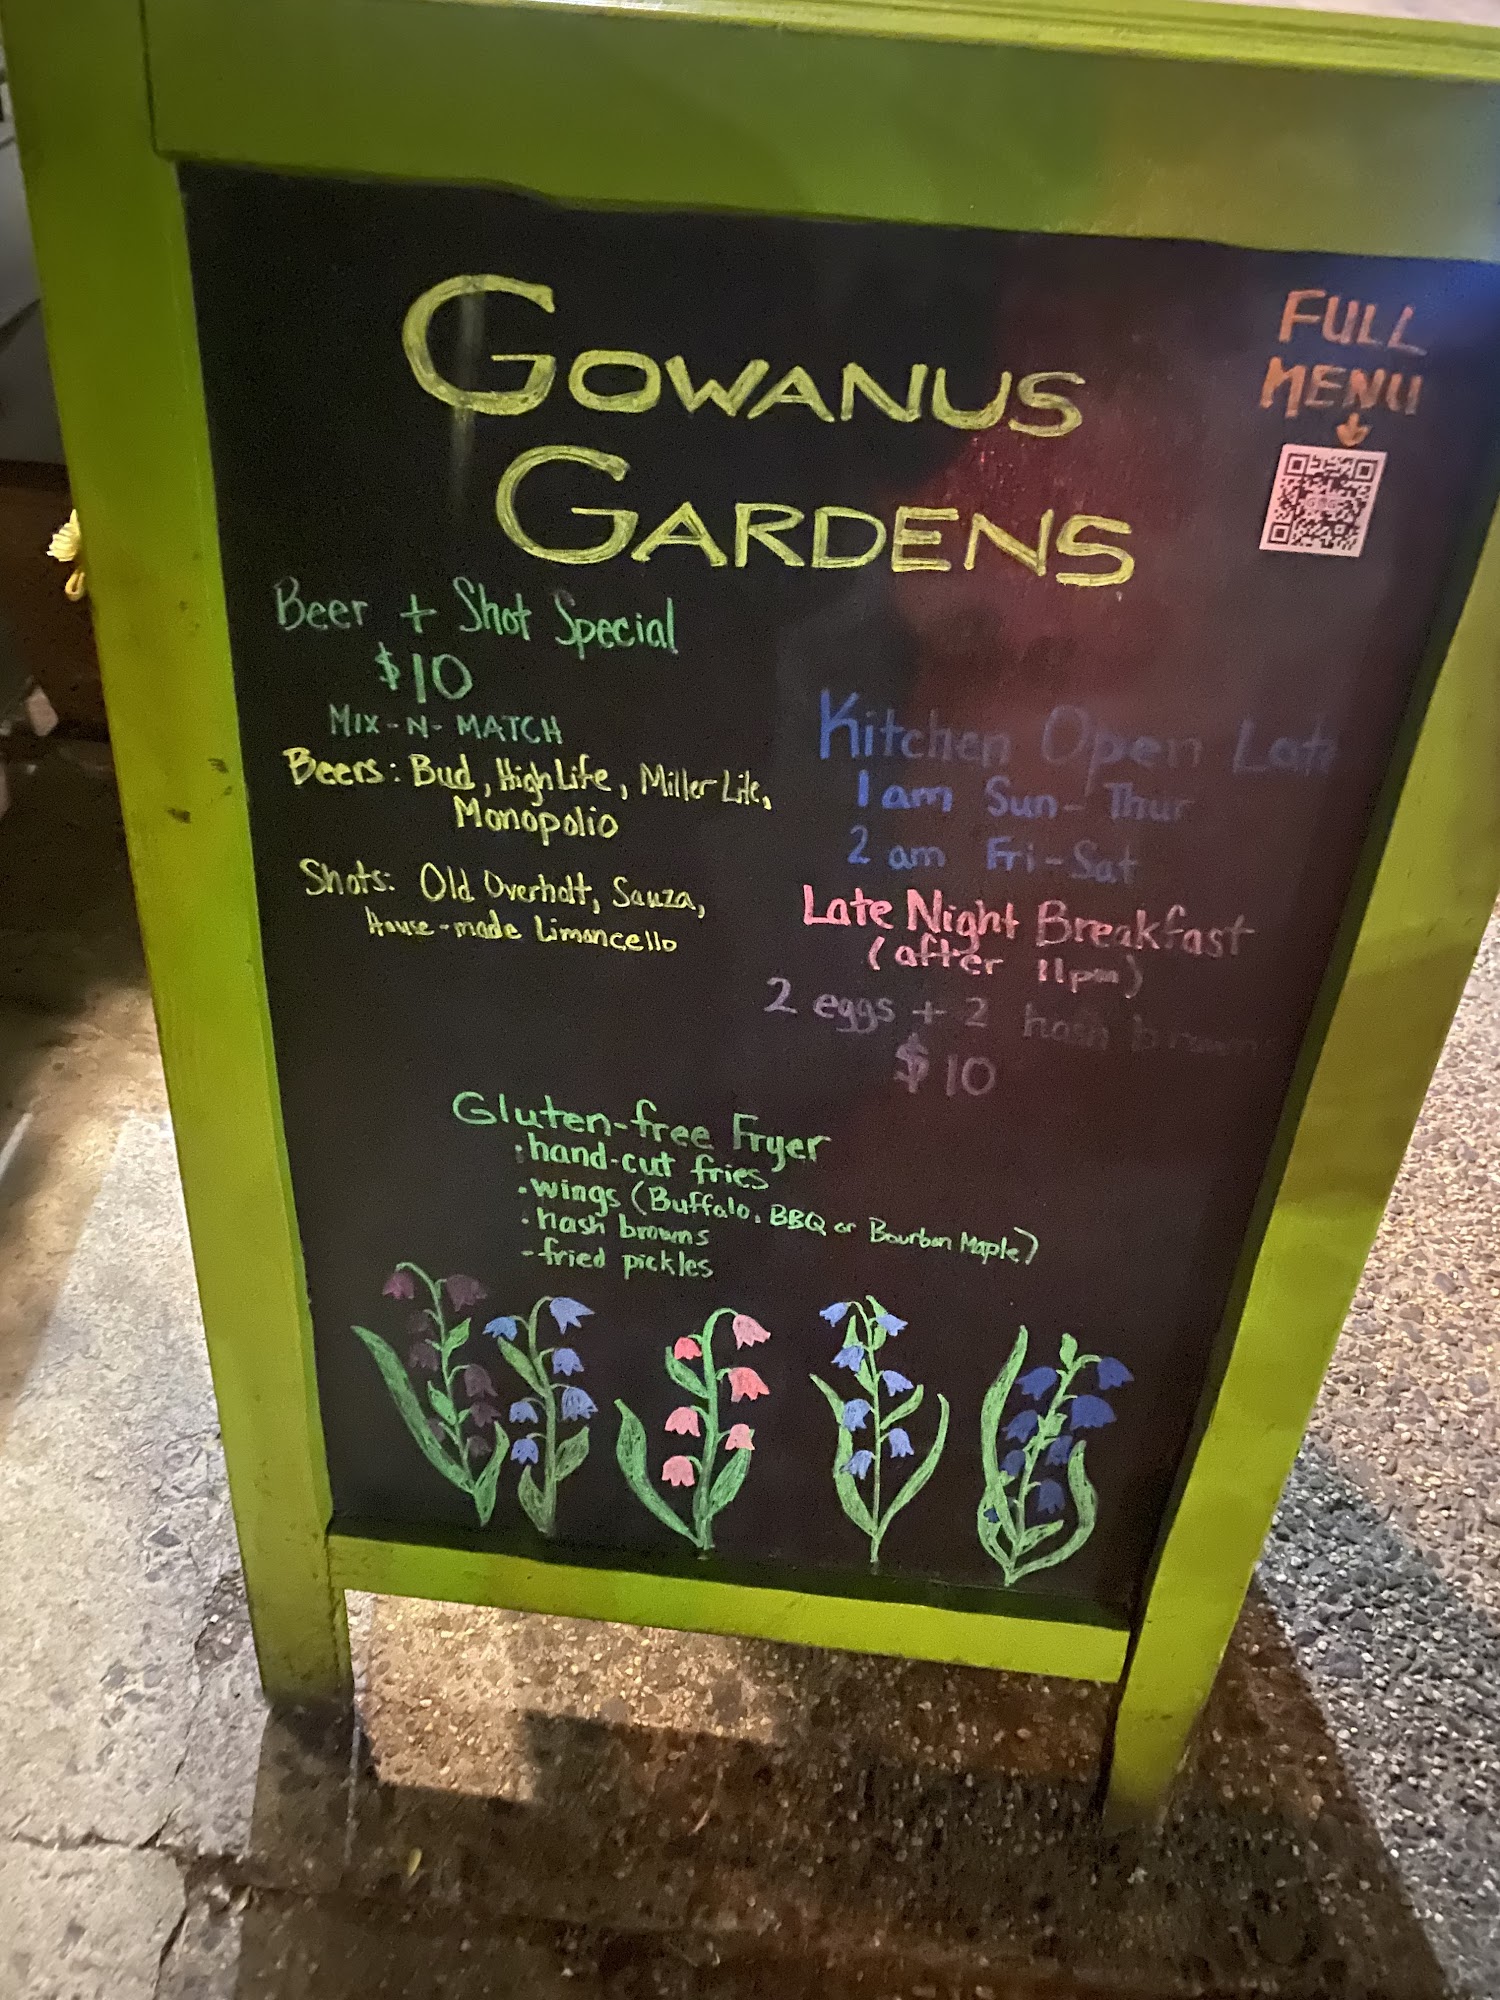 GOWANUS
GARDENS
FULL
MENU
Beer + Shot Special
$10
MIX-N-MATCH
Beers: Bud, High Life, Miller Lite,
Monopolio
Shots: Old Overholt, Sauza,
House-made Limoncello
Kitchen Open Late
1am Sun-Thur
2 am Fri-Sat
Late Night Breakfast
(after 11pm)
2 eggs + 2 hash browns
$10
Gluten-free Fryer
·hand-cut fries
·wings (Buffalo, BBQ or Bourbon Maple)
·hash browns
-fried pickles